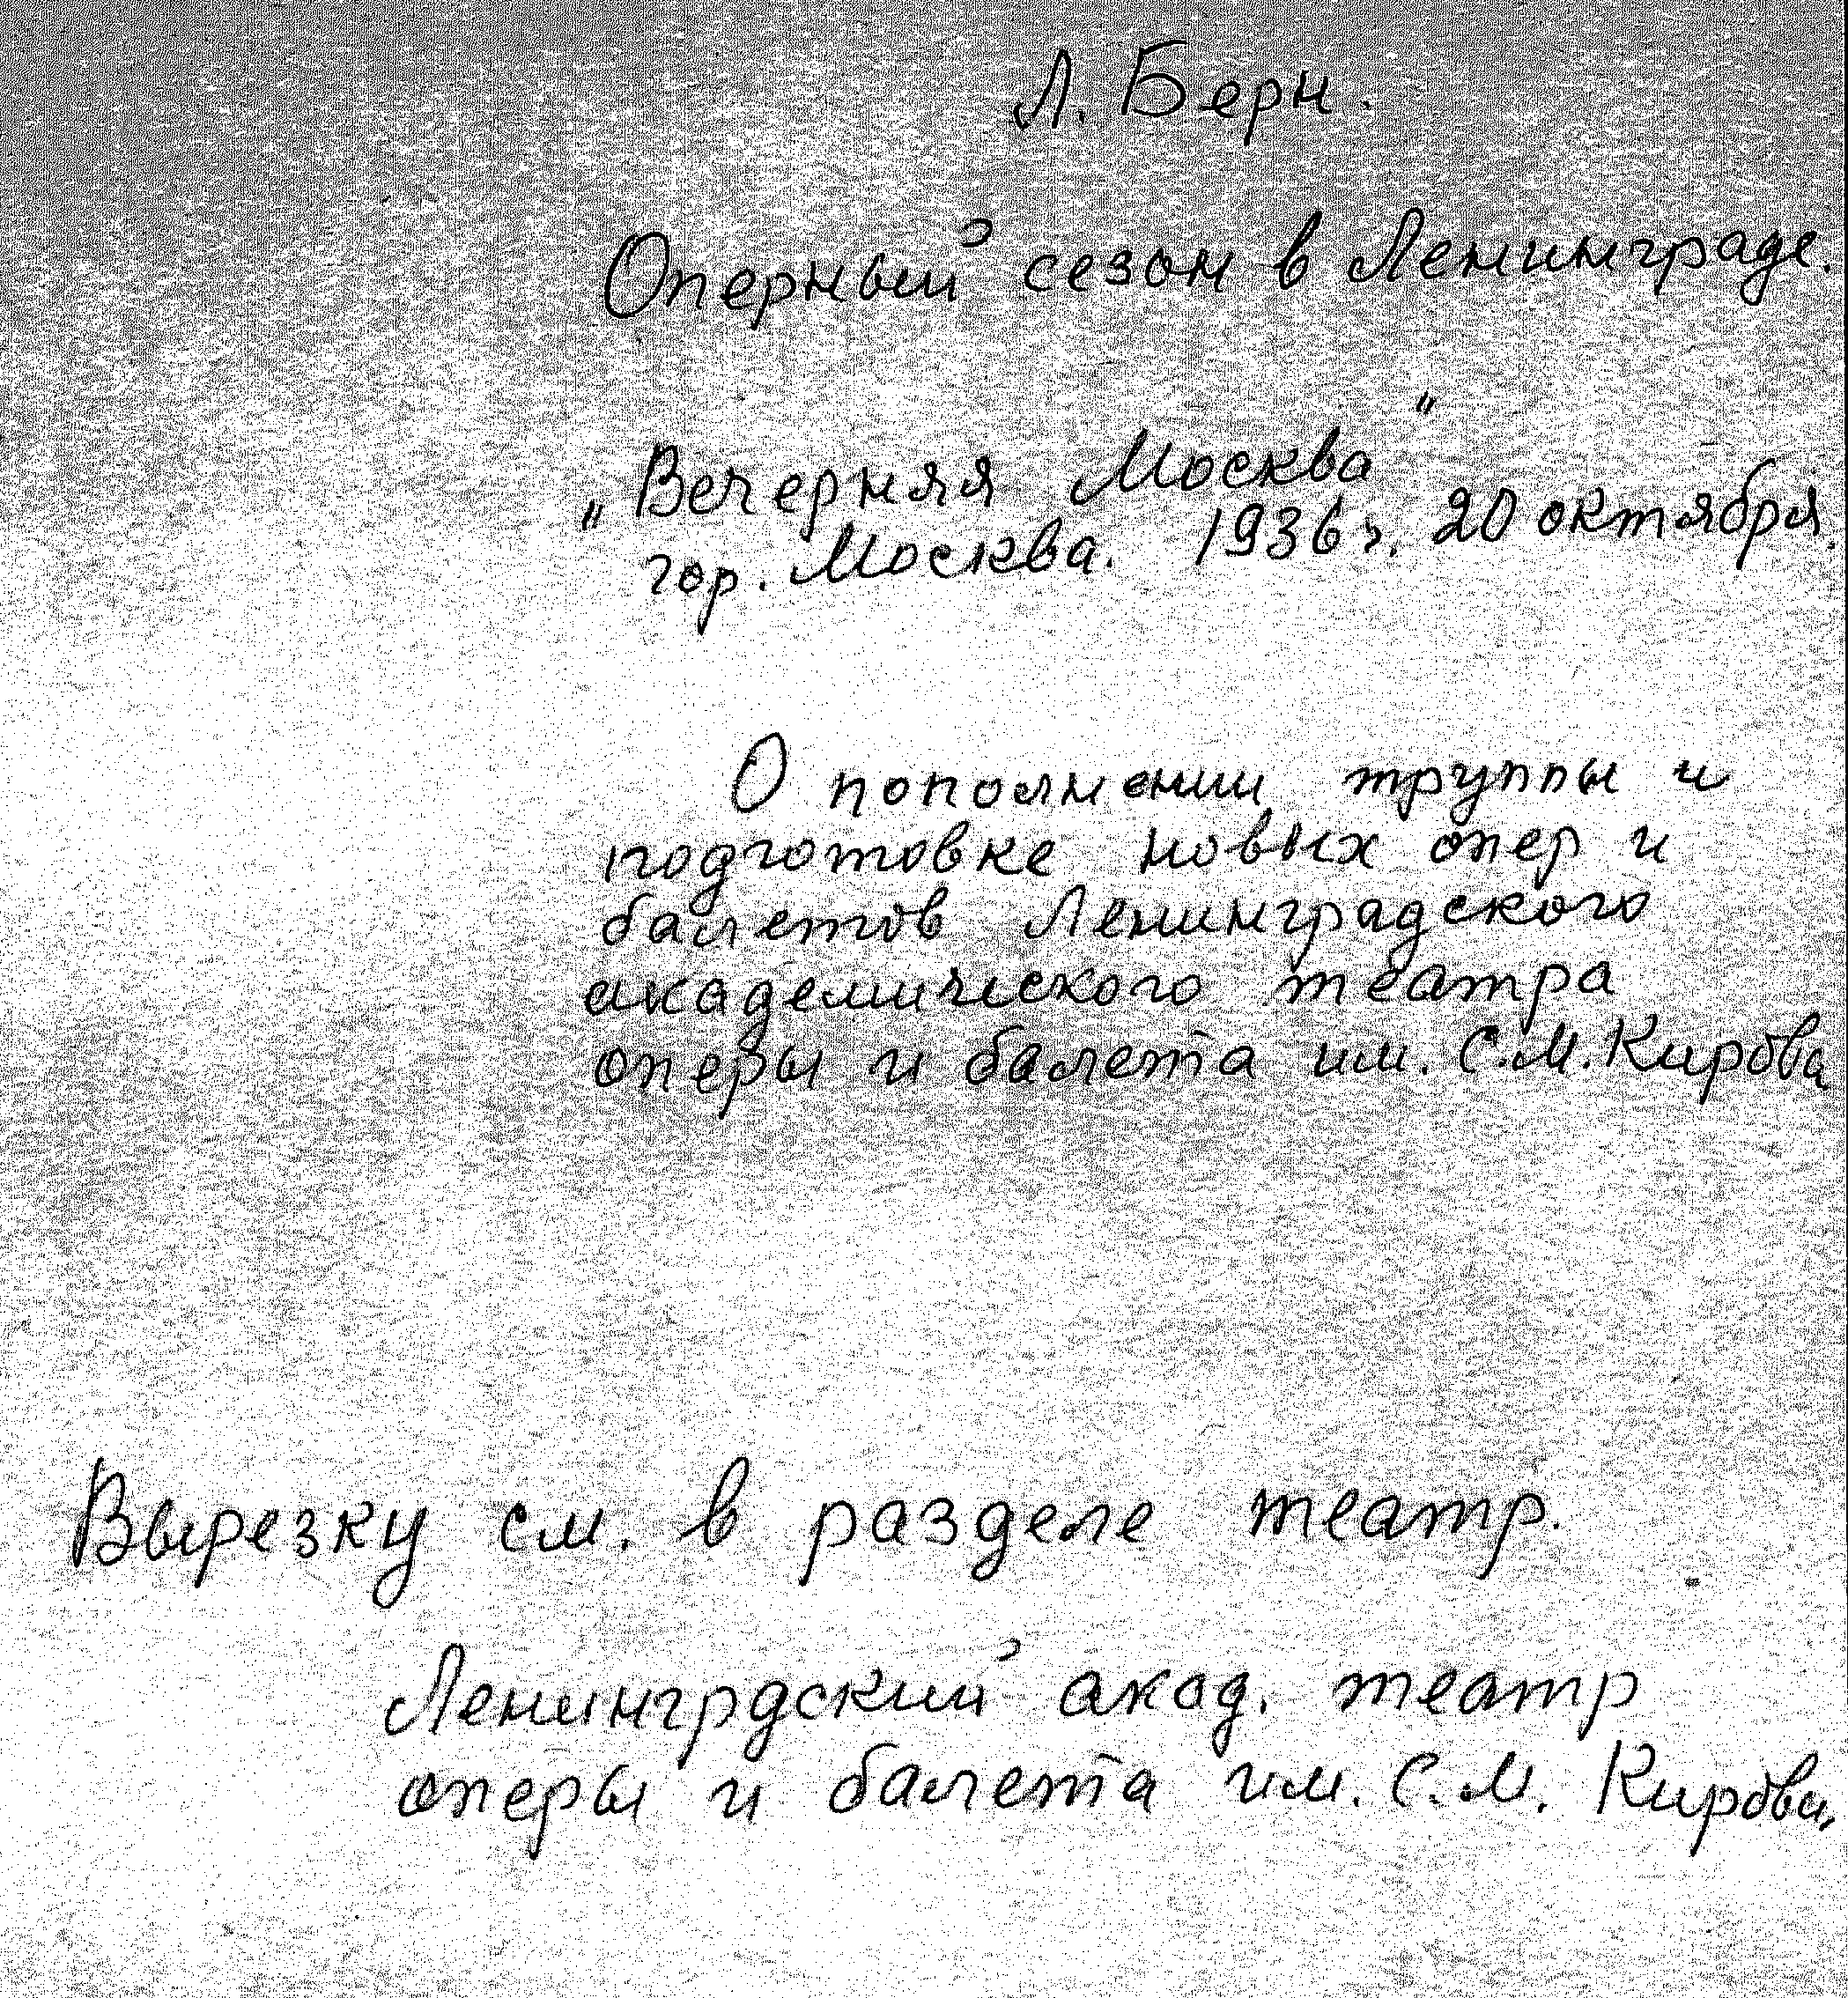 Л. Берн.
Оперный сезон в Ленинграде.
„Вечерняя Москва"
гор. Москва. 1936 г. 20 октября.
О пополнении труппы и
подготовке новых опер и
балетов Ленинградского
академического театра
оперы и балета им. С.М. Кирова
Вырезку см. в разделе театр.
Ленингрдский акад. театр
оперы и балета им. С.М. Кирова.